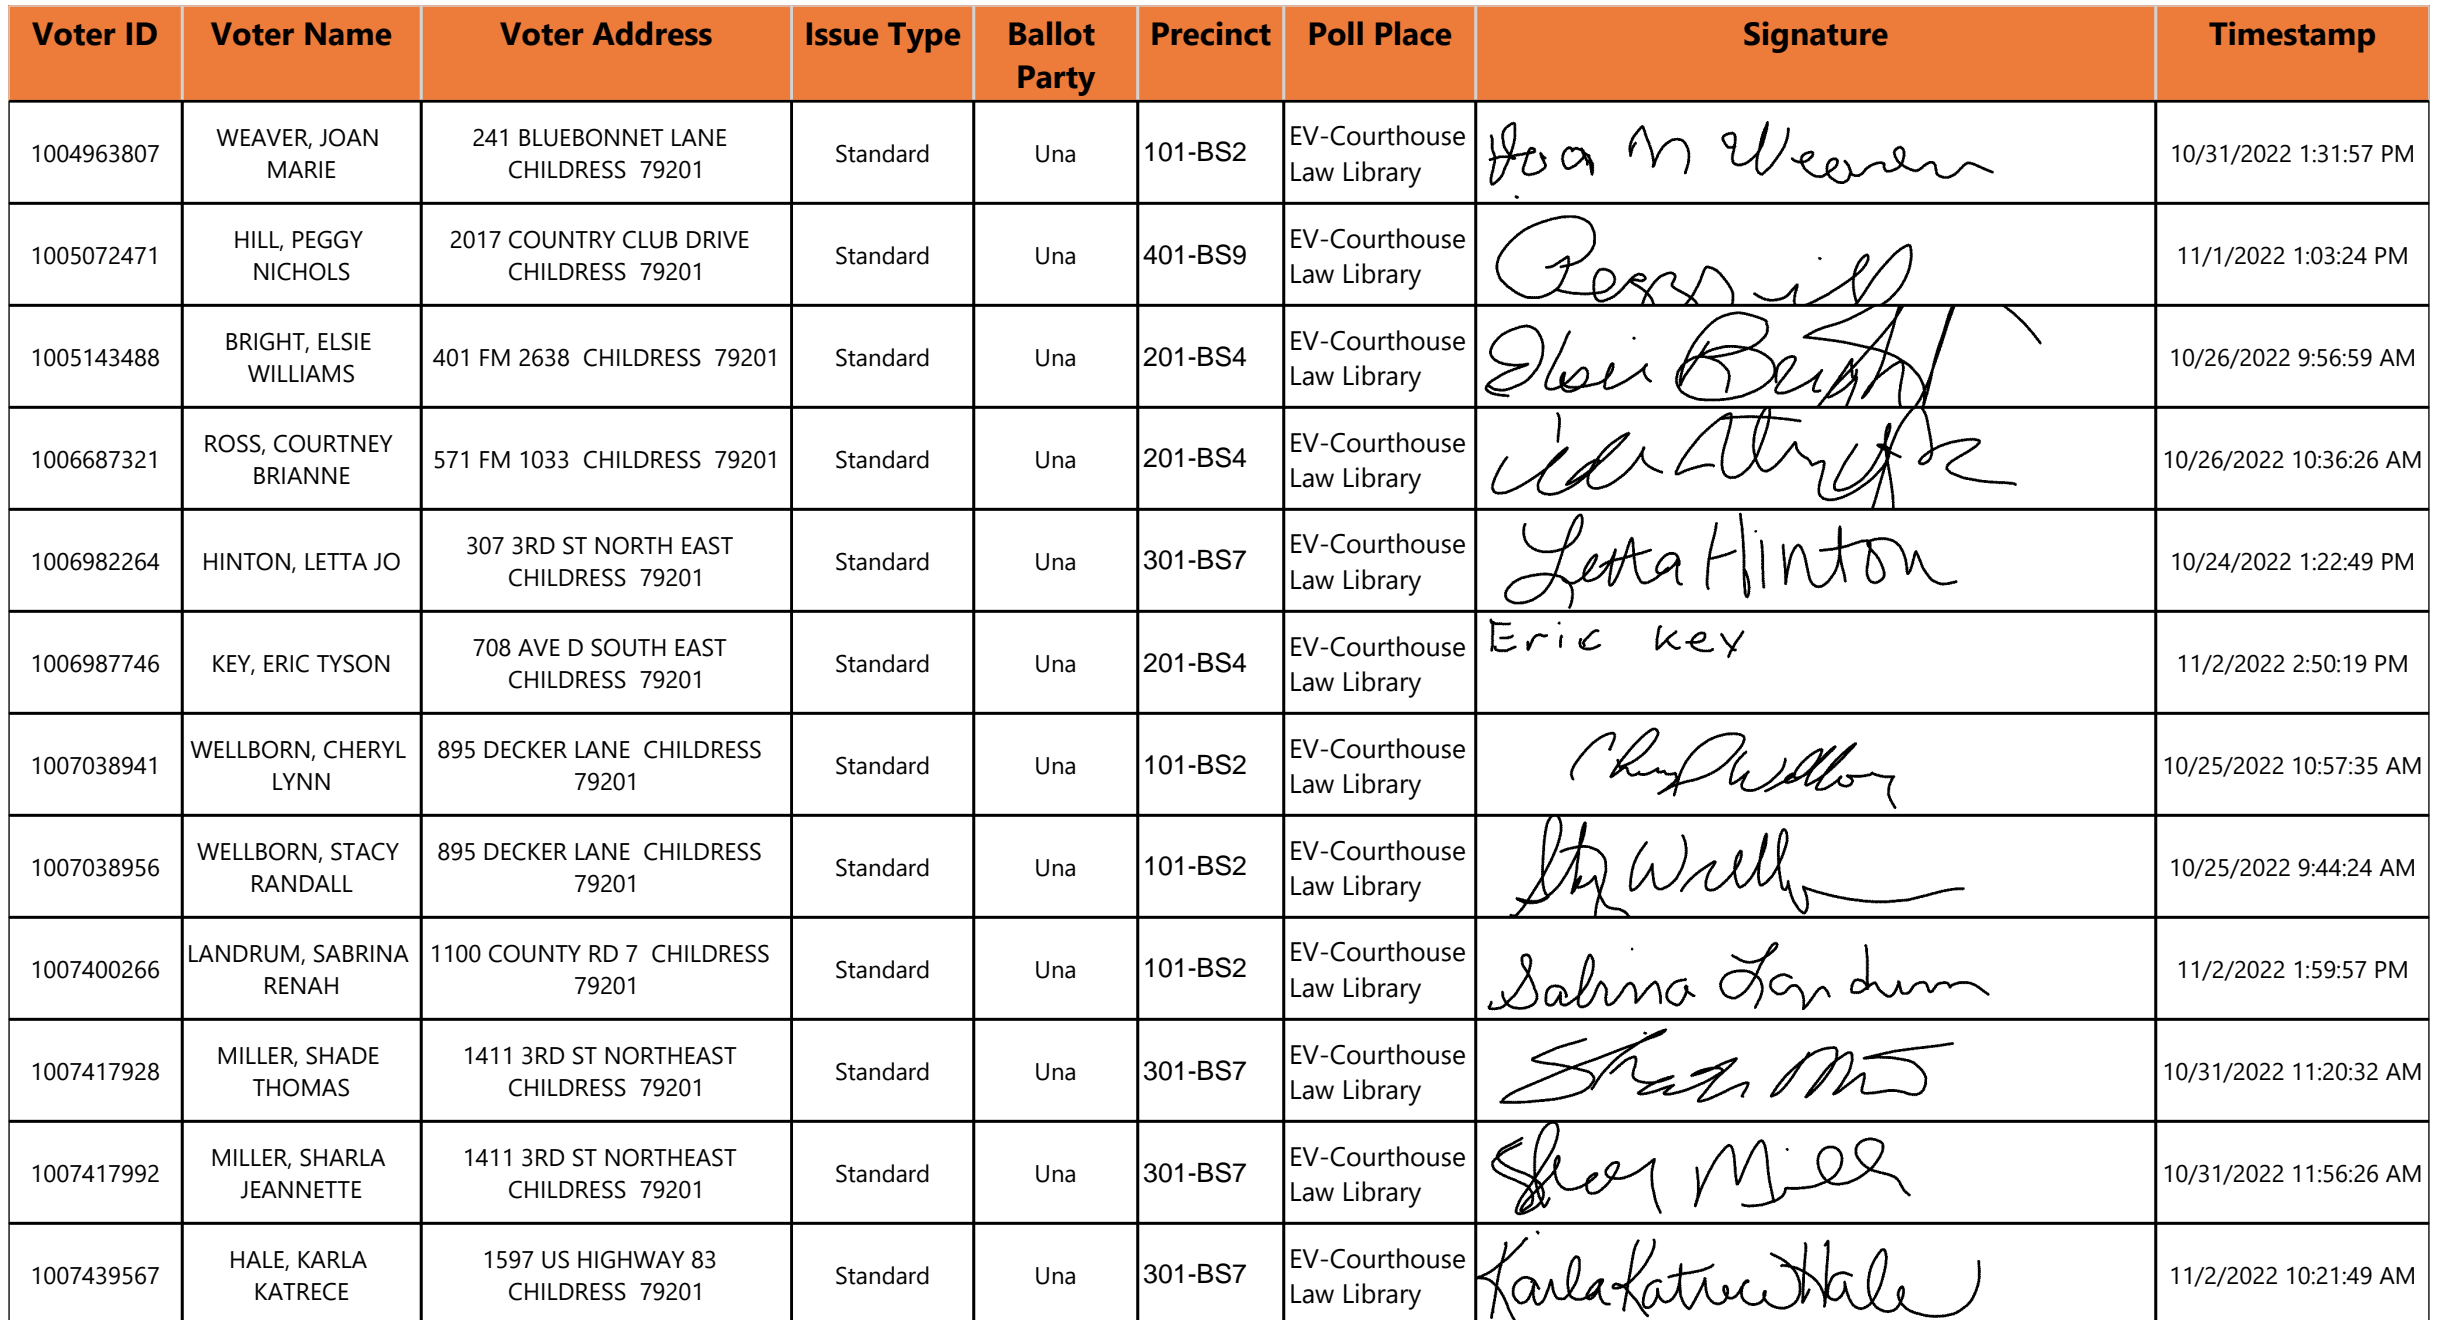 Voter ID Voter Name Voter Address Issue Type Ballot Party Precinct Poll Place Signature Timestamp
1004963807 WEAVER, JOAN MARIE 241 BLUEBONNET LANE CHILDRESS 79201 Standard Una 101-BS2 EV-Courthouse Law Library M Weaver 10/31/2022 1:31:57 PM
1005072471 HILL, PEGGY NICHOLS 2017 COUNTRY CLUB DRIVE CHILDRESS 79201 Standard Una 401-BS9 EV-Courthouse Law Library 11/1/2022 1:03:24 PM
1005143488 BRIGHT, ELSIE WILLIAMS 401 FM 2638 CHILDRESS 79201 Standard Una 201-BS4 EV-Courthouse Law Library Elsie Bright 10/26/2022 9:56:59 AM
1006687321 ROSS, COURTNEY BRIANNE 571 FM 1033 CHILDRESS 79201 Standard Una 201-BS4 EV-Courthouse Law Library 10/26/2022 10:36:26 AM
1006982264 HINTON, LETTA JO 307 3RD ST NORTH EAST CHILDRESS 79201 Standard Una 301-BS7 EV-Courthouse Law Library Letta Hinton 10/24/2022 1:22:49 PM
1006987746 KEY, ERIC TYSON 708 AVE D SOUTH EAST CHILDRESS 79201 Standard Una 201-BS4 EV-Courthouse Law Library Eric Key 11/2/2022 2:50:19 PM
1007038941 WELLBORN, CHERYL LYNN 895 DECKER LANE CHILDRESS 79201 Standard Una 101-BS2 EV-Courthouse Law Library 10/25/2022 10:57:35 AM
1007038956 WELLBORN, STACY RANDALL 895 DECKER LANE CHILDRESS 79201 Standard Una 101-BS2 EV-Courthouse Law Library 10/25/2022 9:44:24 AM
1007400266 LANDRUM, SABRINA RENAH 1100 COUNTY RD 7 CHILDRESS 79201 Standard Una 101-BS2 EV-Courthouse Law Library Sabrina Landrum 11/2/2022 1:59:57 PM
1007417928 MILLER, SHADE THOMAS 1411 3RD ST NORTHEAST CHILDRESS 79201 Standard Una 301-BS7 EV-Courthouse Law Library 10/31/2022 11:20:32 AM
1007417992 MILLER, SHARLA JEANNETTE 1411 3RD ST NORTHEAST CHILDRESS 79201 Standard Una 301-BS7 EV-Courthouse Law Library 10/31/2022 11:56:26 AM
1007439567 HALE, KARLA KATRECE 1597 US HIGHWAY 83 CHILDRESS 79201 Standard Una 301-BS7 EV-Courthouse Law Library Karla Katrece Hale 11/2/2022 10:21:49 AM